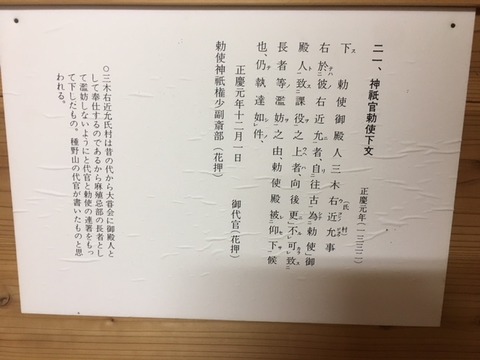 二一、神祇官勅使下文
正慶元年(一三三二)
下 勅使御殿人三木右近允(氏村)事
右於彼右近允者、自往古為勅使御
殿人致課役之上者、向後更不可致
長者等濫妨之由、勅使殿被仰下候
也、仍執達如件、
正慶元年十二月一日 御代官(花押)
勅使神祇権少副斎部(花押)
○三木右近允氏村は昔の代から大嘗会に御殿人と
して奉仕するのであるから麻殖忌部の長者とし
て濫妨しないようにと代官と勅使の連署をもっ
て下したもの。種野山の代官が書いたものと思
われる。